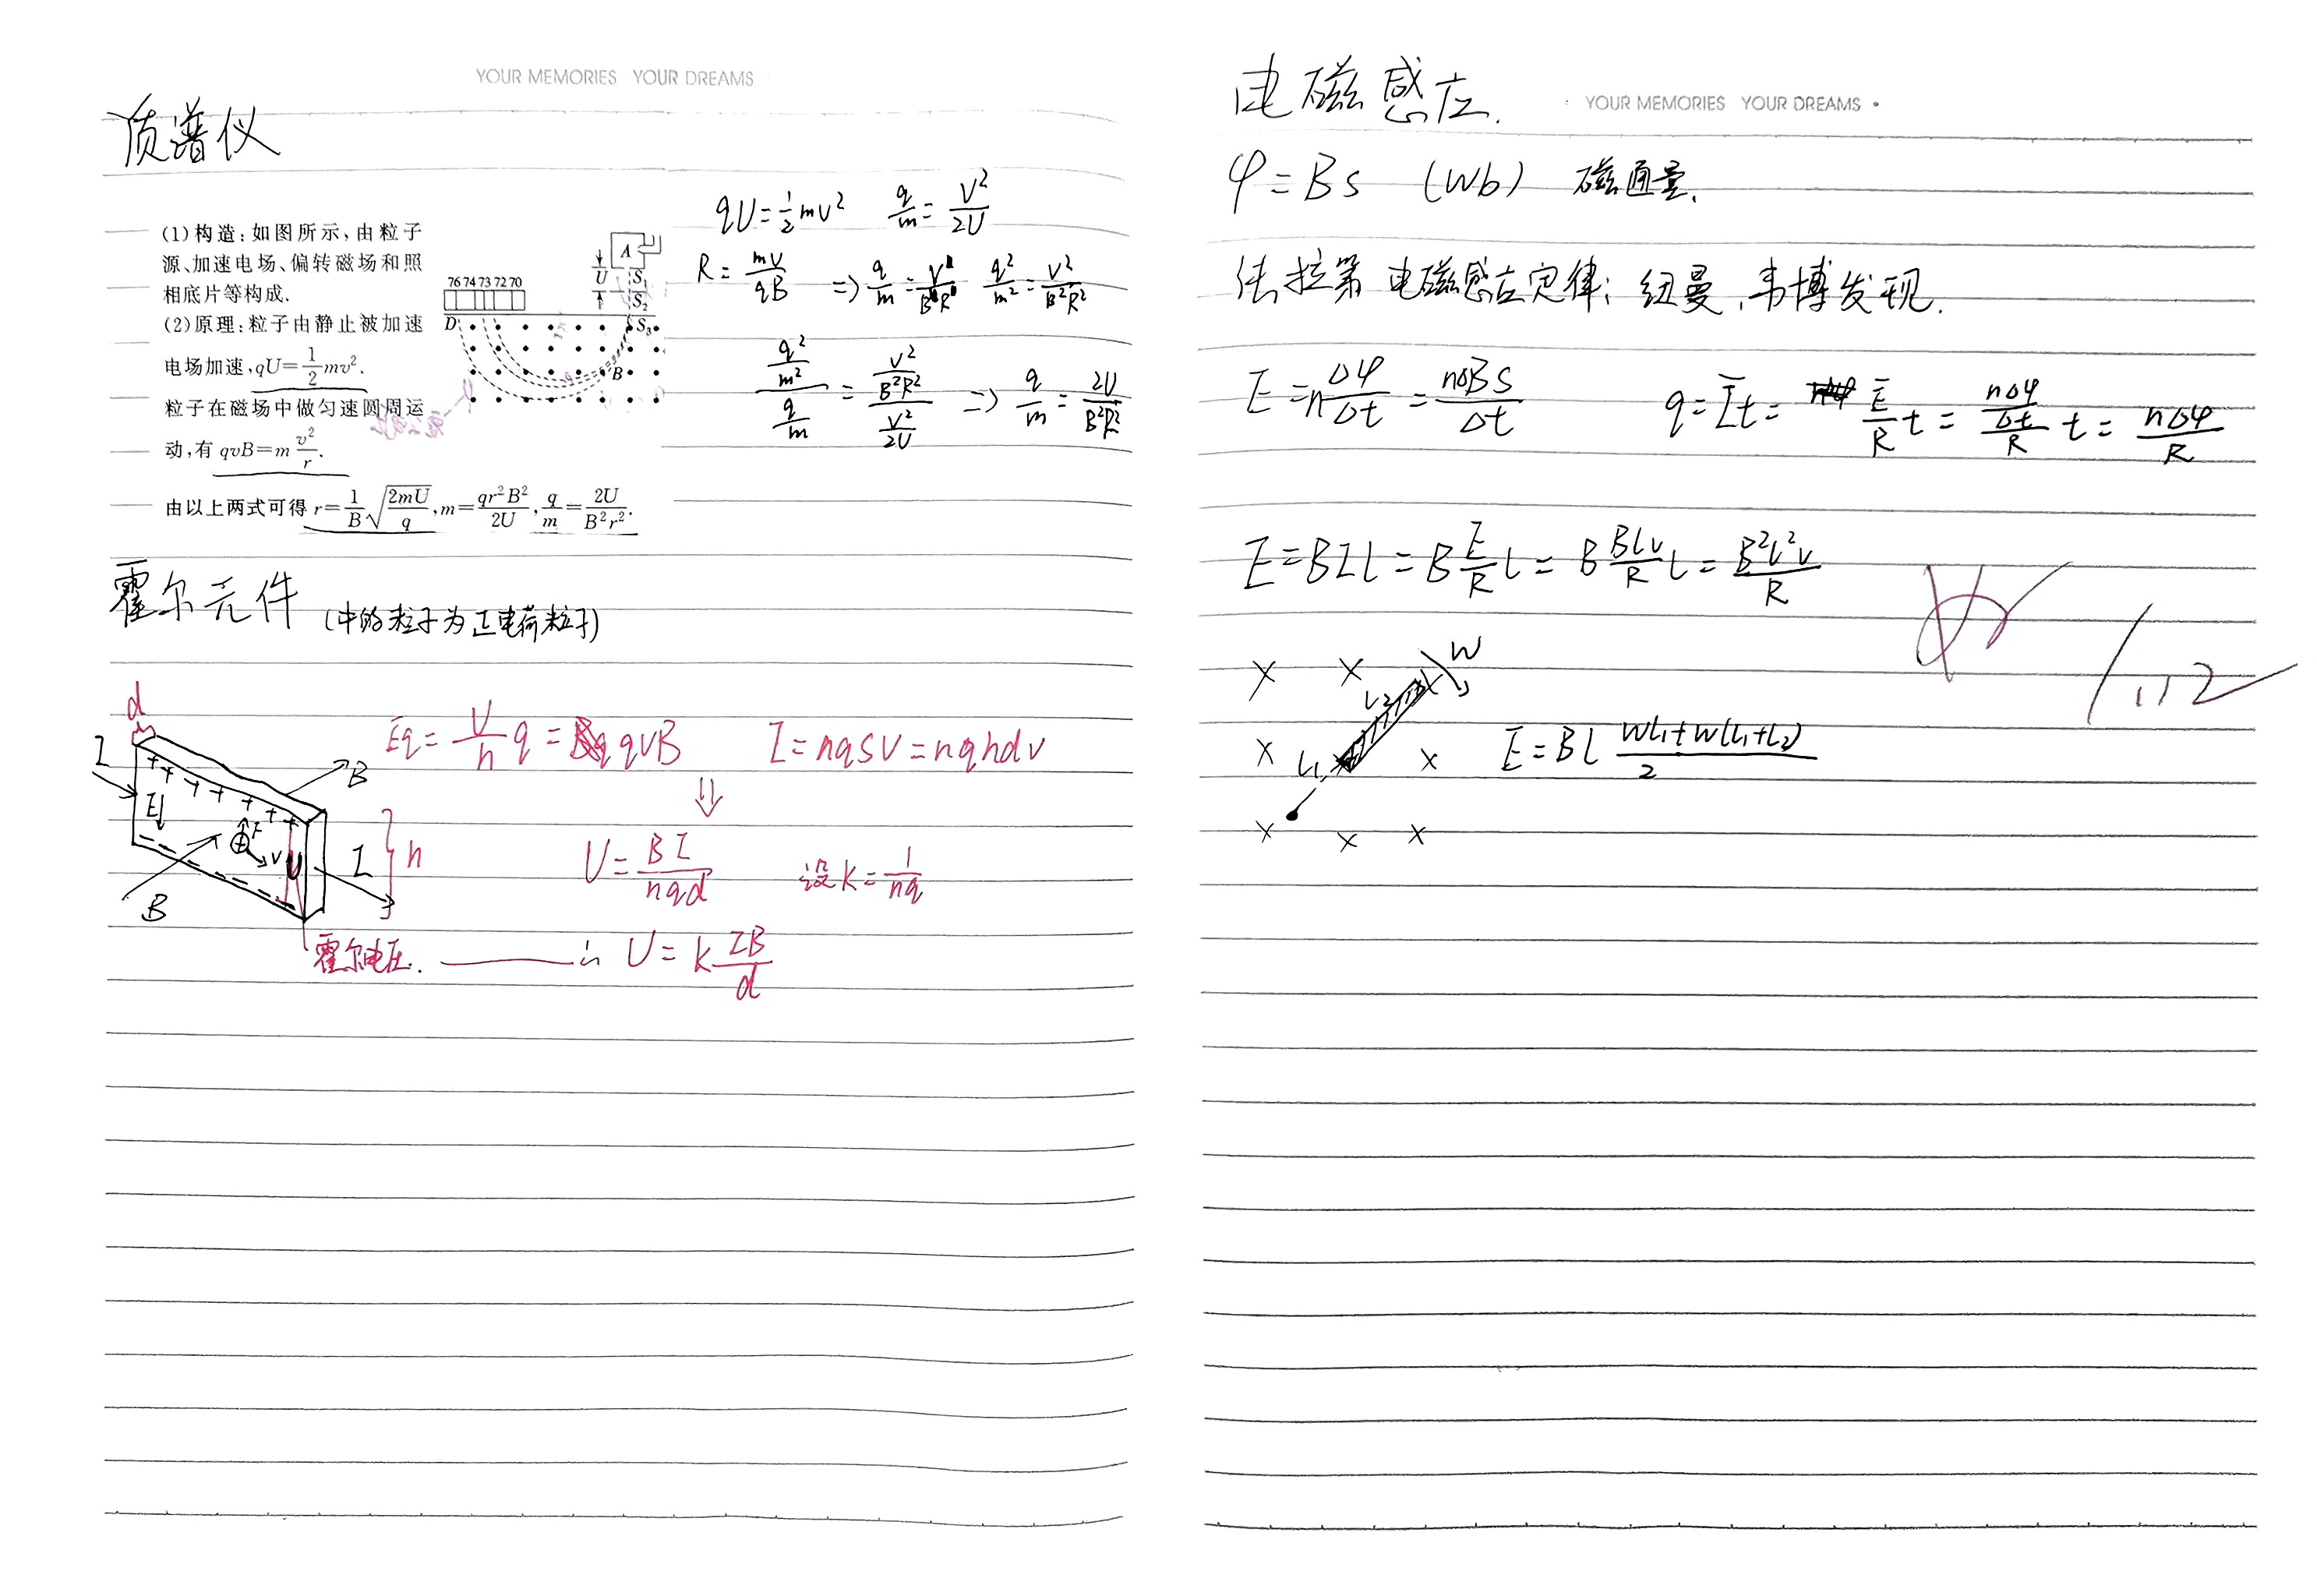 YOUR MEMORIES YOUR DREAMS
质谱仪
(1)构造:如图所示,由粒子
源、加速电场、偏转磁场和照
相底片等构成.
(2)原理:粒子由静止被加速
电场加速,qU=\frac{1}{2}mv².
粒子在磁场中做匀速圆周运
动,有 qvB=m\frac{v²}{r}.
由以上两式可得 r=\frac{1}{B}\sqrt{\frac{2mU}{q}},m=\frac{qr²B²}{2U},\frac{q}{m}=\frac{2U}{B²r²}.
A
U S₁
S₂
S₃
76 74 73 72 70
D
B
qU=\frac{1}{2}mv² \frac{q}{m}=\frac{v²}{2U}
R=\frac{mv}{qB} ⇒ \frac{q}{m}=\frac{v}{BR} \frac{q²}{m²}=\frac{v²}{B²R²}
\frac{\frac{q²}{m²}}{\frac{q}{m}}=\frac{\frac{v²}{B²R²}}{\frac{v²}{2U}} ⇒ \frac{q}{m}=\frac{2U}{B²R²}
霍尔元件 (中的粒子为正电荷粒子)
d
I
B
E
F
v
U
I
h
B
霍尔电压.
Eq=\frac{U}{h}q=qvB I=nqsv=nqhdv
⇓
U=\frac{BI}{nqd} 设k=\frac{1}{nq}
∴ U=k\frac{IB}{d}
电磁感应.
YOUR MEMORIES YOUR DREAMS
φ=Bs (Wb) 磁通量.
法拉第电磁感应定律:纽曼、韦博发现.
E=n\frac{Δφ}{Δt}=\frac{nΔBS}{Δt} q=\bar{I}t=\frac{\bar{E}}{R}t=\frac{\frac{nΔφ}{Δt}}{R}t=\frac{nΔφ}{R}
F=BIL=B\frac{E}{R}L=B\frac{BLv}{R}L=\frac{B²L²v}{R}
W
L₂
L₁
E=BL\frac{WL₁+W(L₁+L₂)}{2}